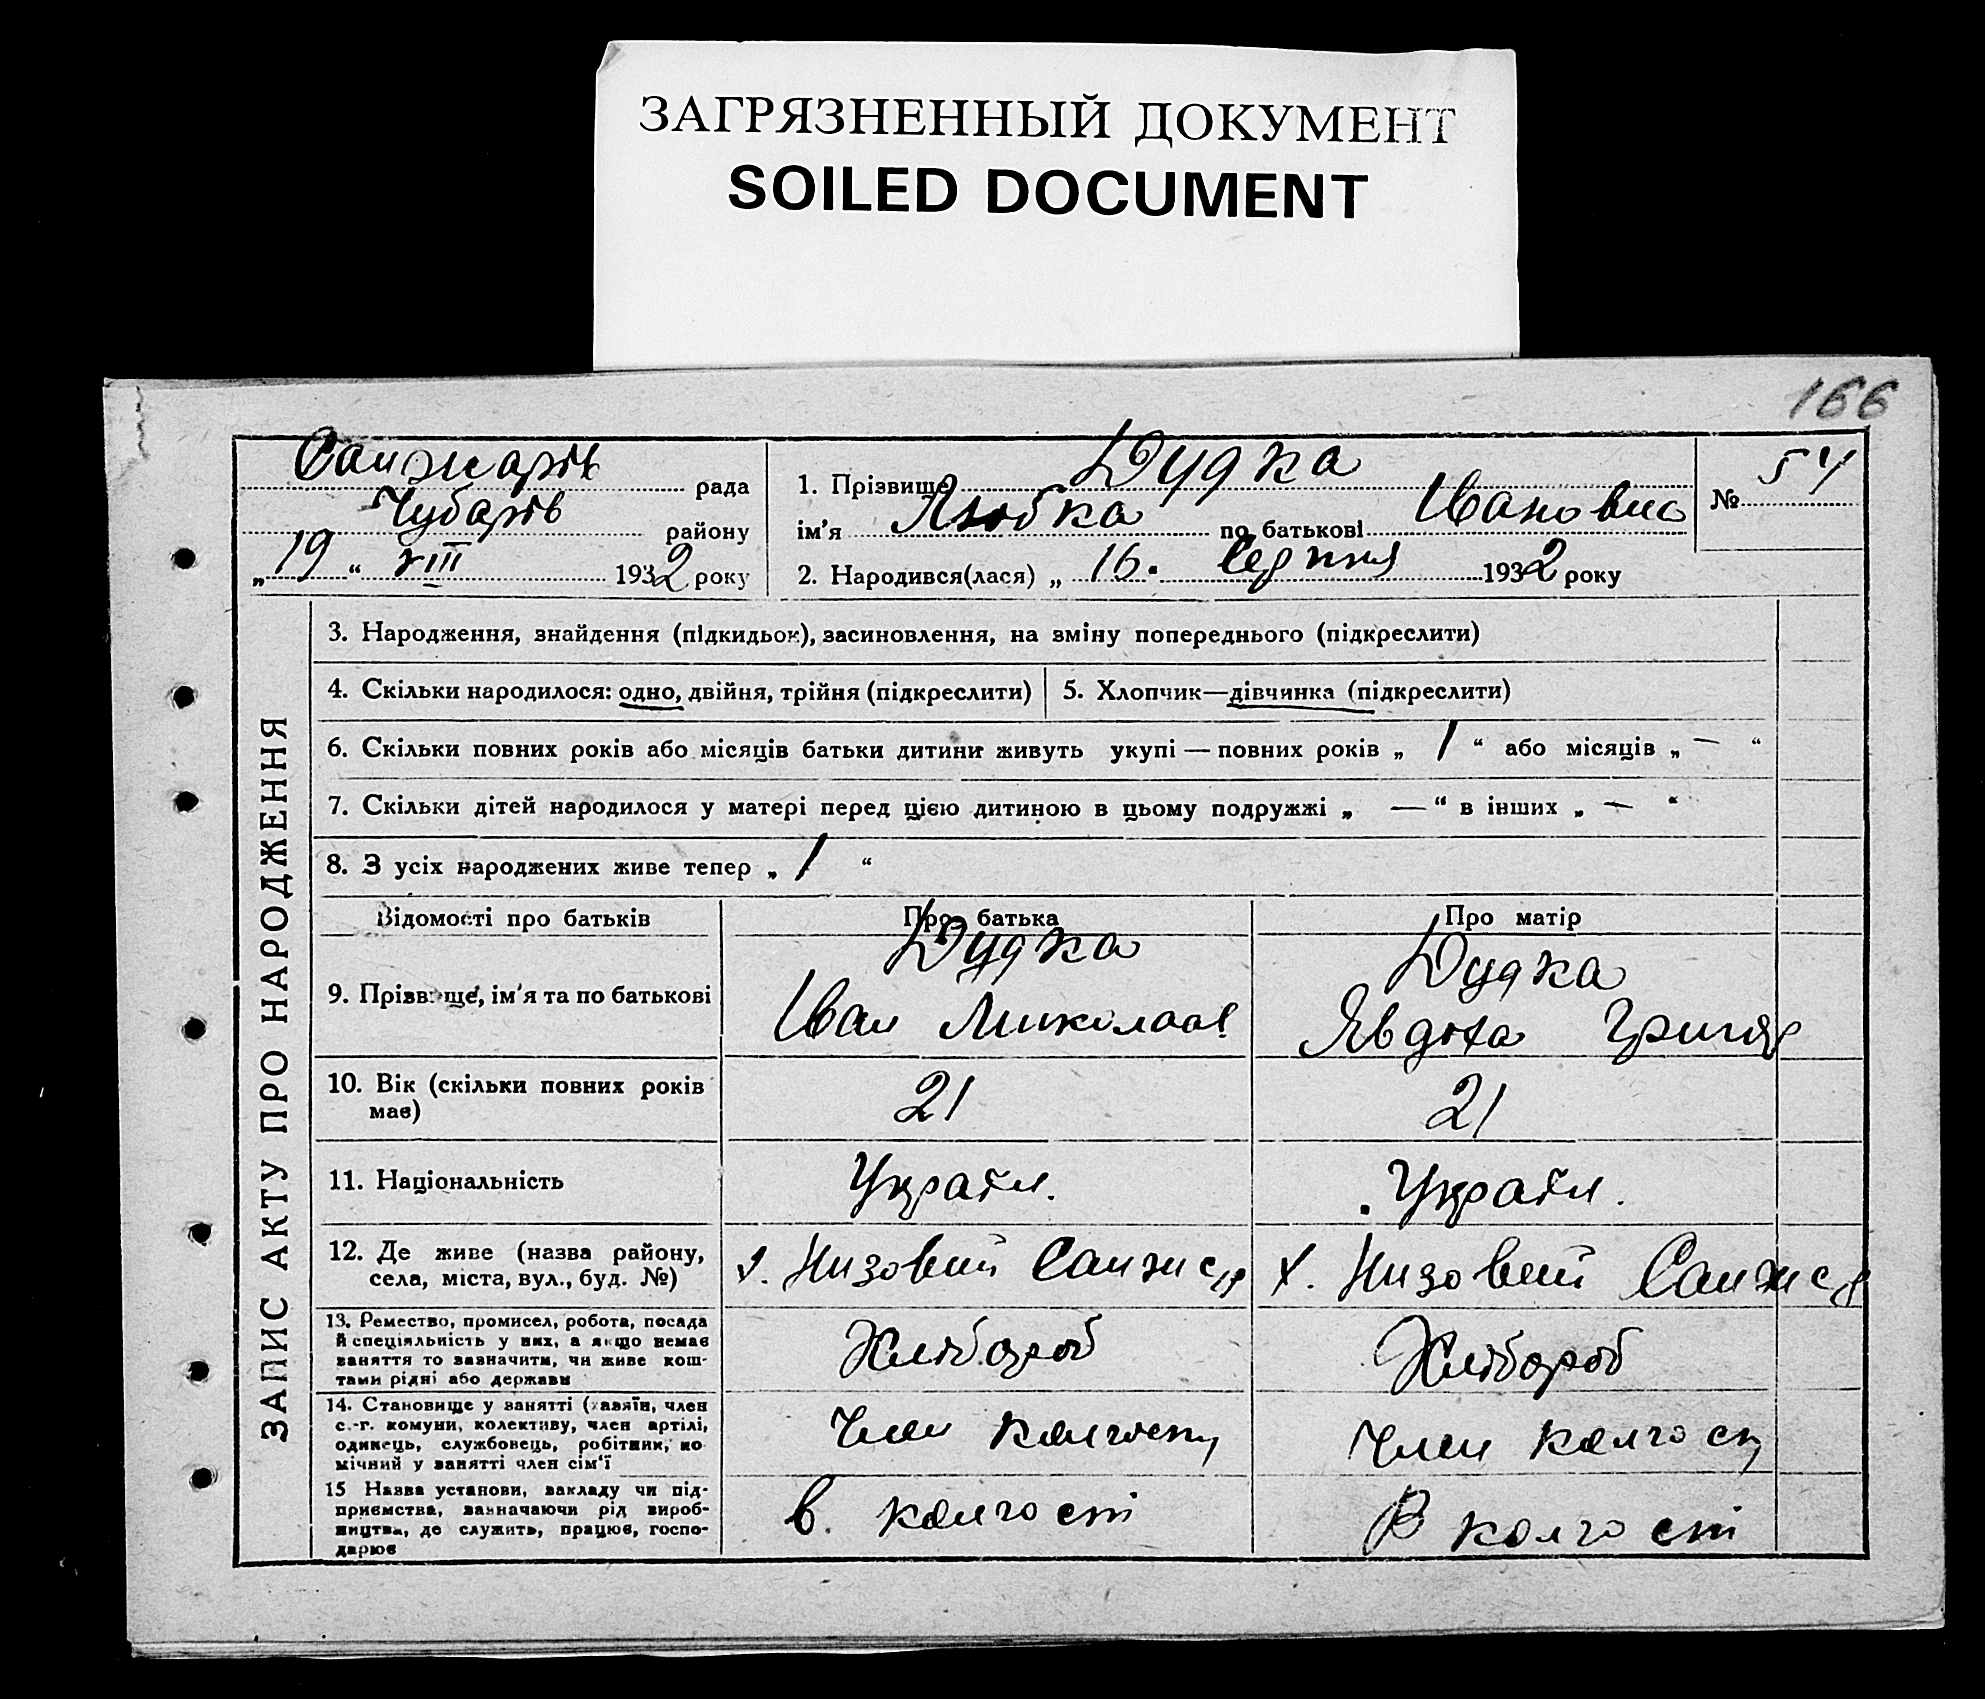 ЗАГРЯЗНЕННЫЙ ДОКУМЕНТ
SOILED DOCUMENT
166
Санжарів рада
Чубарів району
„ 19 “ VIII 1932 року
1. Прізвище Дудка
ім'я Любка по батькові Івановна
2. Народився(лася) „ 16. Серпня 1932 року
№ 54
ЗАПИС АКТУ ПРО НАРОДЖЕННЯ
3. Народження, знайдення (підкидьок), засиновлення, на зміну попереднього (підкреслити)
4. Скільки народилося: одно, двійня, трійня (підкреслити)
5. Хлопчик—дівчинка (підкреслити)
6. Скільки повних років або місяців батьки дитини живуть укупі — повних років „ 1 “ або місяців „ — “
7. Скільки дітей народилося у матері перед цією дитиною в цьому подружжі „ — “ в інших „ — “
8. З усіх народжених живе тепер „ 1 “
Відомості про батьків
Про батька
Про матір
9. Прізвище, ім'я та по батькові
Дудка
Іван Миколаєв
Дудка
Явдоха Григор
10. Вік (скільки повних років
має)
21
21
11. Національність
Україн.
Україн.
12. Де живе (назва району,
села, міста, вул., буд. №)
х. Низовий Санж с/р
х. Низовий Санж с/р
13. Ремество, промисел, робота, посада
й спеціяльність у них, а якщо немає
заняття то зазначити, чи живе кош-
тами рідні або держави
Хлібороб
Хлібороб
14. Становище у занятті (хазяїн, член
с.-г. комуни, колективу, член артілі,
одинець, службовець, робітник, по
мічний у занятті член сім'ї
Член колгоспу
Член колгоспу
15 Назва установи, закладу чи під-
приємства, зазначаючи рід вироб-
ництва, де служить, працює, госпо-
дарює
в. колгоспі
В колгоспі